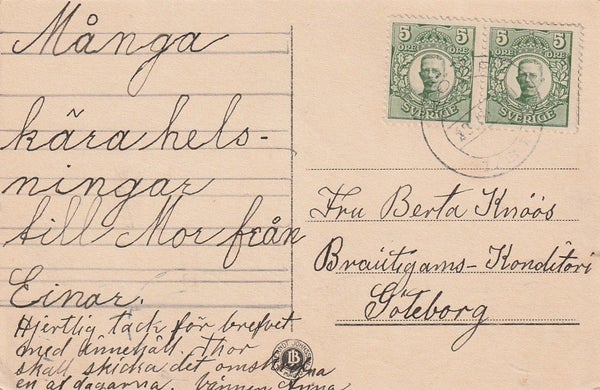 Många
kära hels-
ningar
till Mor från
Einar.
Hjertlig tack för brefvet
med innehåll. Thor
skall skicka det omskrifna
en af dagarna. Vännen Anna
5 5
ÖRE ÖRE
SVERIGE
5 5
ÖRE ÖRE
SVERIGE
Fru Berta Knöös
Bräutigams-Konditori
Göteborg